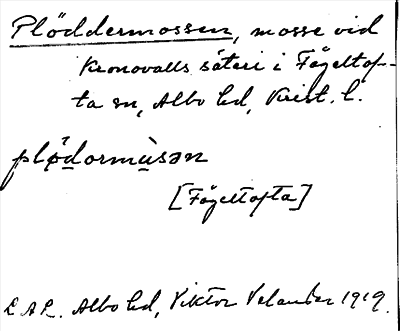 Plöddermossen, mosse vid
Kronovalls säteri i Fågeltof-
ta sn, Albo hd, Krist. l.
plø̀dormùsən
[Fågeltofta]
LAL. Albo hd, Viktor Velander 1919.